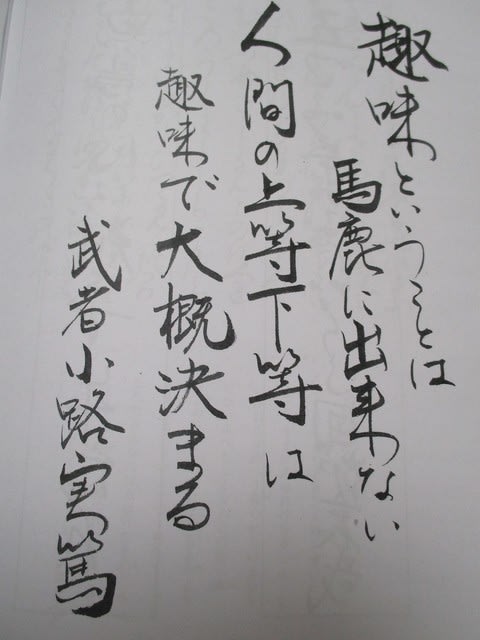 趣味ということは
馬鹿に出来ない
人間の上等下等は
趣味で大概決まる
武者小路実篤